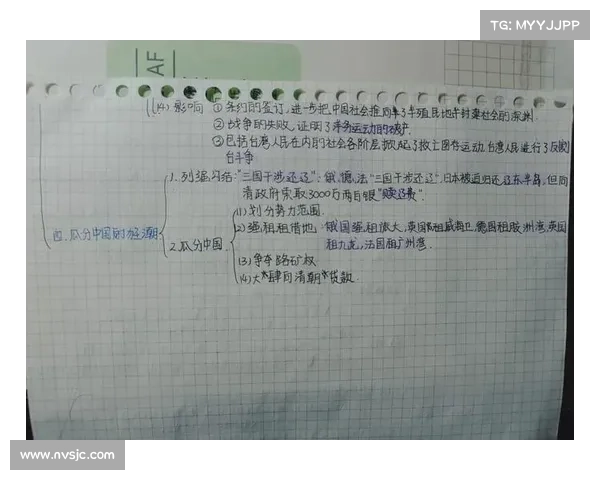 TG: MYYJJPP
AF
(4) 影响 ① 条约的签订,进一步把中国社会推向了半殖民地半封建社会的深渊
② 战争的失败,证明了洋务运动的破产
③ 包括台湾人民在内的社会各阶层掀起了救亡图存运动,台湾人民进行了反割
台斗争
1. 列强 "三国干涉还辽":俄、德、法"三国干涉还辽",日本被迫归还辽东半岛,但向
清政府索取3000万两白银"赎辽费".
四. 瓜分中国的狂潮
2. 瓜分中国
(1) 划分势力范围.
(2) 强租租借地: 俄国强租旅大,英国租威海卫,德国租胶州湾,英国
租九龙,法国租广州湾.
(3) 争夺路矿权
(4) 大肆向清朝贷款.
www.nvsjc.com